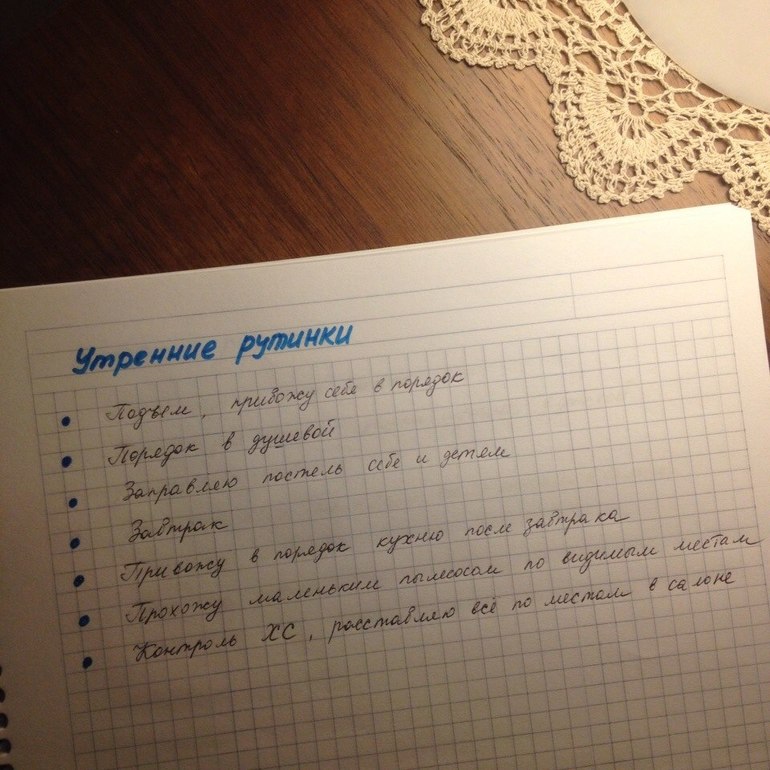 Утренние рутинки
• Подъем, привожу себе в порядок
• Порядок в душевой
• Заправляю постель себе и детям
• Завтрак
• Привожу в порядок кухню после завтрака
• Прохожу маленьким пылесосом по видимым местам
• Контроль ХС, расставляю всё по местам в салоне